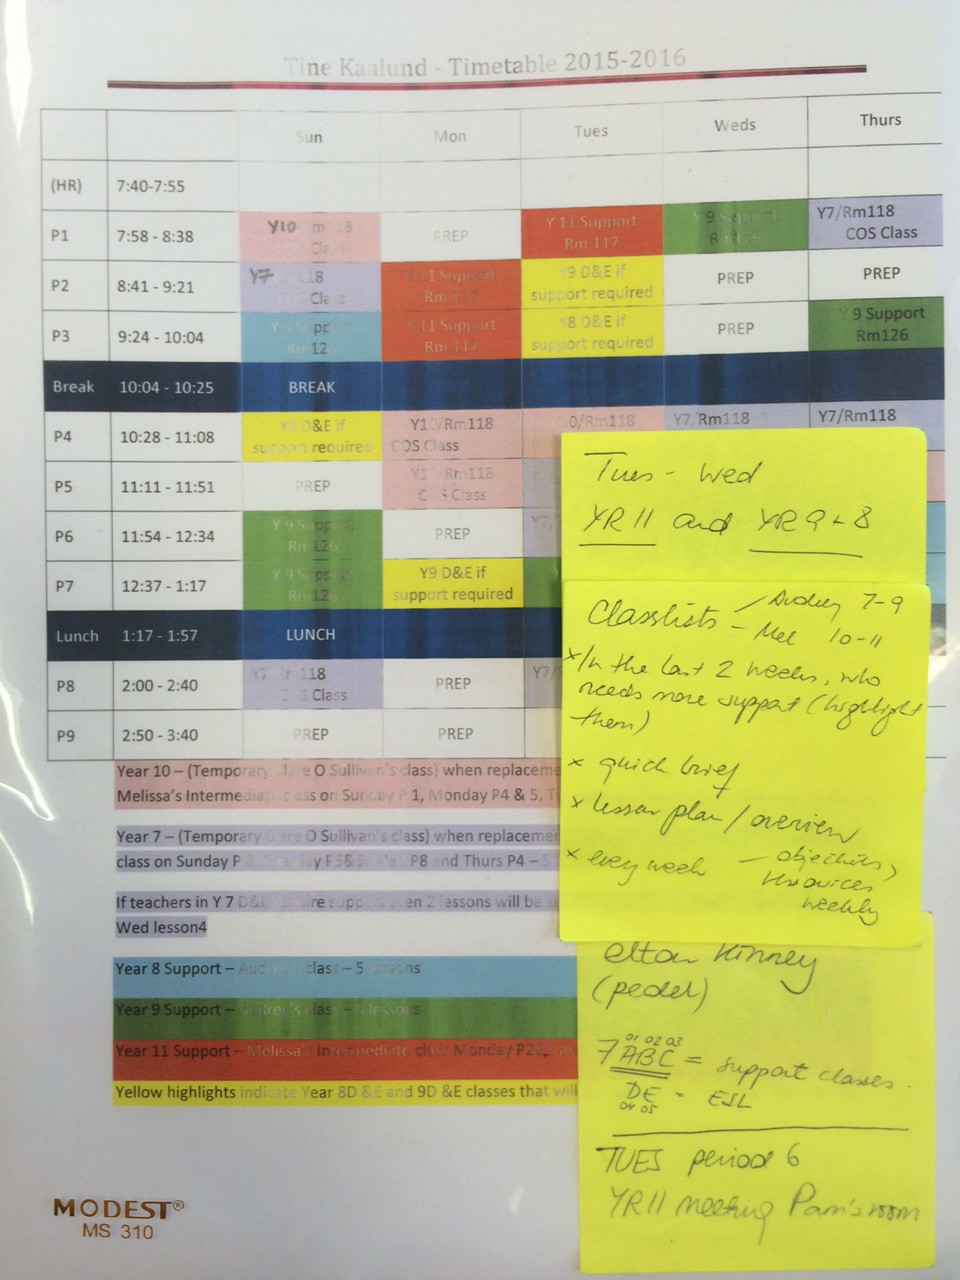 Tine Kaalund - Timetable 2015-2016
Sun Mon Tues Weds Thurs
(HR) 7:40-7:55
P1 7:58 - 8:38 Y10 Rm118 Class PREP Y 11 Support Rm 117 Y 9 Support Y7/Rm118 COS Class
P2 8:41 - 9:21 Y7 118 Class Y 11 Support Rm 117 Y9 D&E if support required PREP PREP
P3 9:24 - 10:04 Rm 12 Y 11 Support Rm 117 Y8 D&E if support required PREP Y 9 Support Rm126
Break 10:04 - 10:25 BREAK
P4 10:28 - 11:08 D&E if support required Y10/Rm118 COS Class Y10/Rm118 Y7/Rm118 Y7/Rm118
P5 11:11 - 11:51 PREP Y10/Rm118 COS Class
P6 11:54 - 12:34 Y 9 Support Rm 126 PREP Y7/
P7 12:37 - 1:17 Y 9 Support Rm 126 Y9 D&E if support required
Lunch 1:17 - 1:57 LUNCH
P8 2:00 - 2:40 Y7 Rm118 COS Class PREP Y7/
P9 2:50 - 3:40 PREP PREP
Year 10 – (Temporary Clare O Sullivan's class) when replaceme
Melissa's Intermediate class on Sunday P 1, Monday P4 & 5, T
Year 7 – (Temporary Clare O Sullivan's class) when replacemen
class on Sunday P P8 and Thurs P4 – 5
If teachers in Y 7 D&E require support then 2 lessons will be s
Wed lesson4
Year 8 Support – class – 5 lessons
Year 9 Support – class – lessons
Year 11 Support – Melissa's Intermediate class Monday P2&
Yellow highlights indicate Year 8D &E and 9D &E classes that will
Tues - Wed
YR 11 and YR 9 + 8
Classlists – Audrey 7-9
– Mel 10-11
x In the last 2 weeks, who
needs more support (highlight
them)
x quick brief
x lesson plan / overview
x every week – objectives,
weekly
elton Kinney
(peder)
01 02 03
7 ABC = support classes.
DE - ESL
04 05
TUES period 6
YR11 meeting Pam's room
MODEST®
MS 310